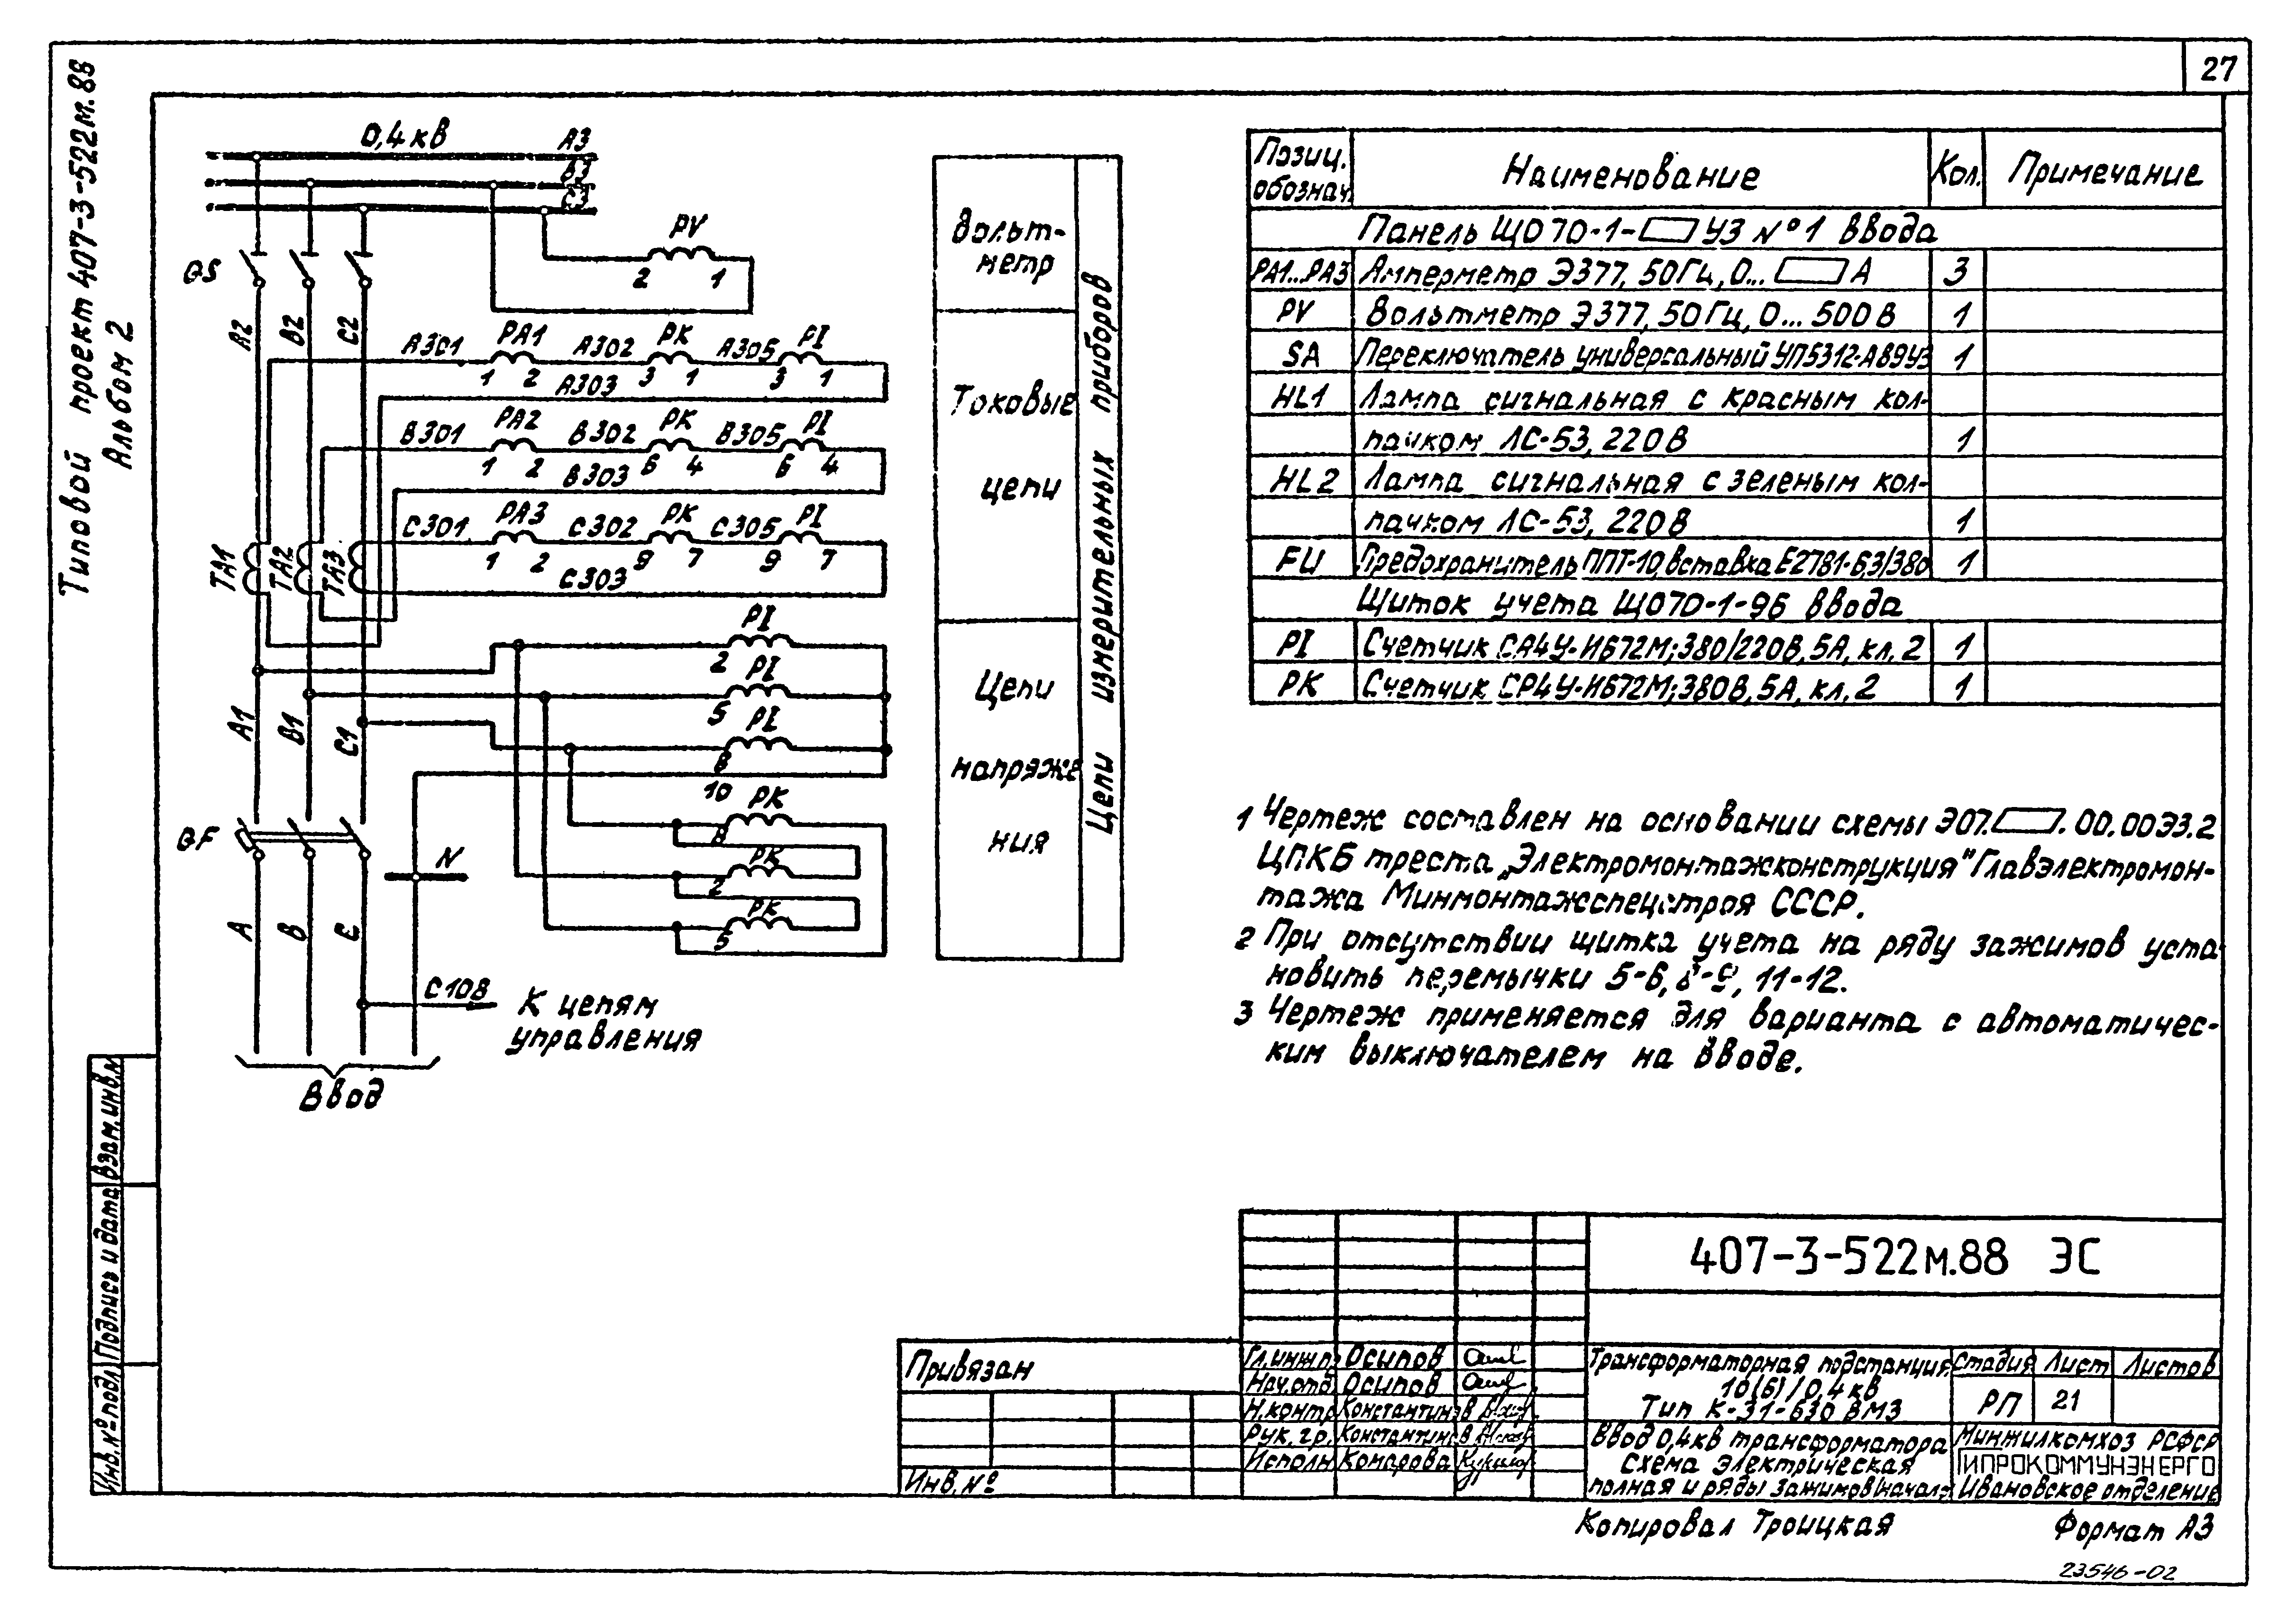 27
Типовой проект 407-3-522м.88
Альбом 2
0,4 кв
А3
В3
С3
PV
2 1
QS
А2 В2 С2
А301 PA1 А302 PK А305 PI
1 2 3 1 3 1
А303
В301 PA2 В302 PK В305 PI
1 2 6 4 6 4
В303
С301 PA3 С302 PK С305 PI
1 2 9 7 9 7
С303
TA1 TA2 TA3
PI
2
PI
5
PI
8
10
PK
8
PK
2
PK
5
А1 В1 С1
QF
N
А В С
С108
К цепям
управления
Ввод
Вольт-
метр
Токовые
цепи
Цепи
напряже
ния
Цепи измерительных приборов
Позиц. обознач. Наименование Кол. Примечание
Панель ЩО70-1- У3 №1 ввода
PA1...PA3 Амперметр Э377, 50Гц, 0... А 3
PV Вольтметр Э377, 50Гц, 0... 500В 1
SA Переключатель универсальный УП5312-А89У3 1
HL1 Лампа сигнальная с красным кол-
пачком ЛС-53, 220В 1
HL2 Лампа сигнальная с зеленым кол-
пачком ЛС-53, 220В 1
FU Предохранитель ППТ-10, вставка Е2781-6,3/380 1
Щиток учета ЩО70-1-96 ввода
PI Счетчик СА4У-И672М; 380/220В, 5А, кл. 2 1
PK Счетчик СР4У-И672М; 380В, 5А, кл. 2 1
1 Чертеж составлен на основании схемы Э07. .00.00Э3.2
ЦПКБ треста „Электромонтажконструкция" Главэлектромон-
тажа Минмонтажспецстроя СССР.
2 При отсутствии щитка учета на ряду зажимов уста
новить перемычки 5-6, 8-9, 11-12.
3 Чертеж применяется для варианта с автоматичес-
ким выключателем на вводе.
Взам. инв.№
Подпись и дата
Инв.№ подл
407-3-522м.88 ЭС
Привязан
Инв.№
Гл.инж.п. Осипов
Нач.отд Осипов
Н.контр Константинов
Рук. гр. Константинов
Исполн Комарова
Трансформаторная подстанция
10(6)/0,4кв
Тип К-31-630 ВМ3
Стадия Лист Листов
РП 21
Ввод 0,4кв трансформатора
схема электрическая
полная и ряды зажимов (начало)
Минжилкомхоз РСФСР
ГИПРОКОММУНЭНЕРГО
Ивановское отделение
Копировал Троицкая Формат А3
23546-02